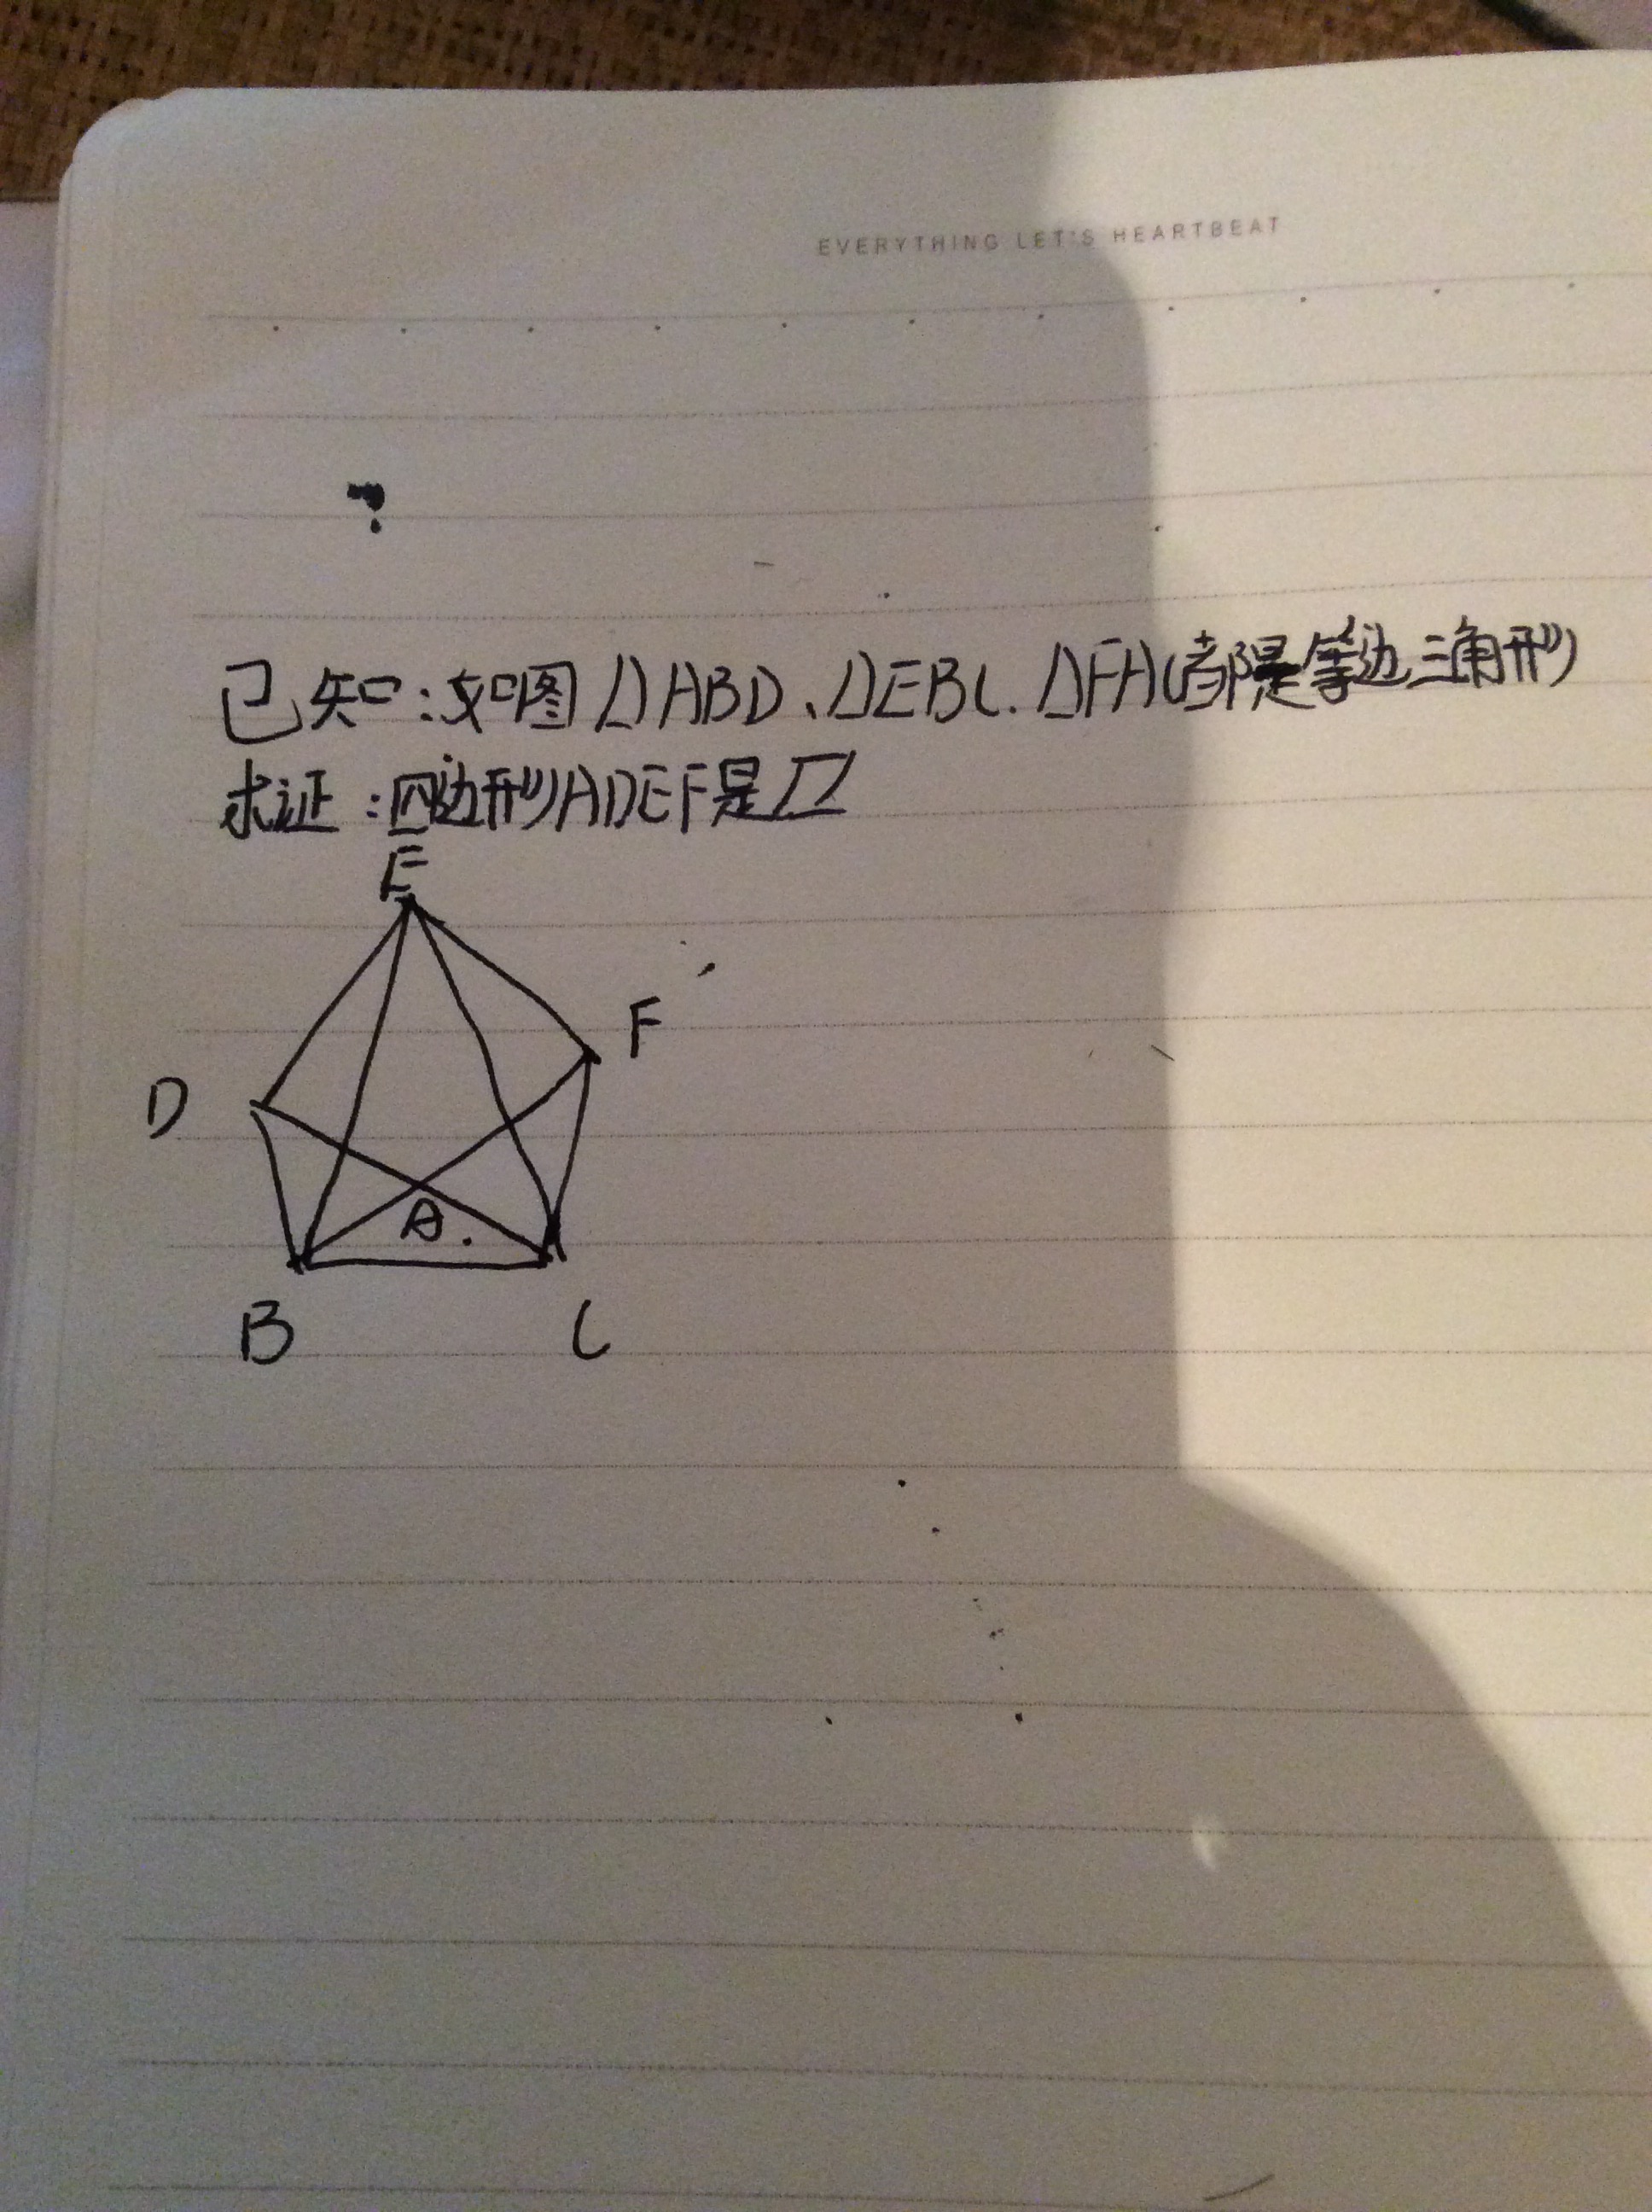 EVERYTHING LET'S HEARTBEAT
已知:如图△ABD、△EBC.△FAC都是等边三角形
求证:四边形ADEF是▱
E
F
D
A
B C